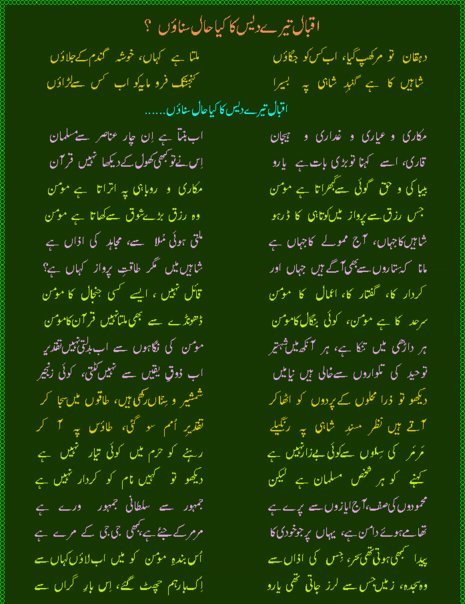 اقبال تیرے دیس کا کیا حال سناؤں ؟
دہقان تو مر کھپ گیا، اب کس کو جگاؤں ملتا ہے کہاں، خوشہ گندم کے جلاؤں
شاہیں کا ہے گنبدِ شاہی پہ بسیرا کنجشک فرو مایہ کو اب کس سے لڑاؤں
اقبال تیرے دیس کا کیا حال سناؤں......
مکاری و عیاری و غداری و ہیجان اب بنتا ہے اِن چار عناصر سے مسلمان
قاری، اسے کہنا تو بڑی بات ہے یارو اِس نے تو کبھی کھول کے دیکھا نہیں قرآن
بیباکی و حق گوئی سے گھبراتا ہے مومن مکاری و روباہی پہ اتراتا ہے مومن
جس رزق سے پرواز میں کوتاہی کا ڈر ہو وہ رزق بڑے شوق سے کھاتا ہے مومن
شاہیں کا جہاں، آج ممولے کا جہاں ہے ملتی ہوئی مُلا سے، مجاہد کی اذاں ہے
مانا کہ ستاروں سے بھی آگے ہیں جہاں اور شاہیں میں مگر طاقتِ پرواز کہاں ہے؟
کردار کا، گفتار کا، اعمال کا مومن قائل نہیں ، ایسے کسی جنجال کا مومن
سرحد کا ہے مومن، کوئی بنگال کا مومن ڈھونڈے سے بھی ملتا نہیں قرآن کا مومن
ہر داڑھی میں تنکا ہے، ہر آنکھ میں شہتیر مومن کی نگاہوں سے اب بدلتی نہیں تقدیر
توحید کی تلواروں سے خالی ہیں نیامیں اب ذوقِ یقیں سے نہیں کٹتی، کوئی زنجیر
دیکھو تو ذرا محلوں کے پردوں کو اٹھا کر شمشیر و سِناں رکھی ہیں، طاقوں میں سجا کر
آتے ہیں نظر مسندِ شاہی پہ رنگیلے تقدیرِ اُمم سو گئی، طاؤس پہ آ کر
مَرمَر کی سِلوں سے کوئی بے زار نہیں ہے رہنے کو حرم میں کوئی تیار نہیں ہے
کہنے کو ہر شخص مسلمان ہے لیکن دیکھو تو کہیں نام کو کردار نہیں ہے
محمودوں کی صف، آج ایازوں سے پرے ہے جمہور سے سلطانی جمہور ورے ہے
تھامے ہوئے دامن ہے، یہاں پر جو خودی کا مرمر کے جئے ہے کبھی جی جی کے مرے ہے
پیدا کبھی ہوتی تھی سحر، جس کی اذاں سے اُس بندہِ مومن کو میں اب لاؤں کہاں سے
وہ سجدہ، زمیں جس سے لرز جاتی تھی یارو اِک بار ہم چھٹ گئے، اِس بارِ گراں سے